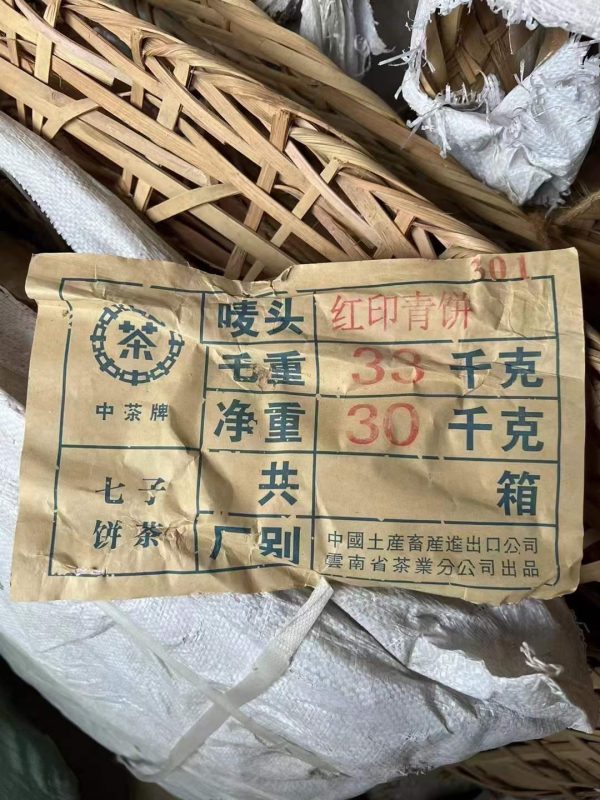 301
茶
中茶牌
唛头 红印青饼
毛重 33 千克
净重 30 千克
七子
饼茶
共 箱
厂别
中國土産畜産進出口公司
雲南省茶業分公司出品